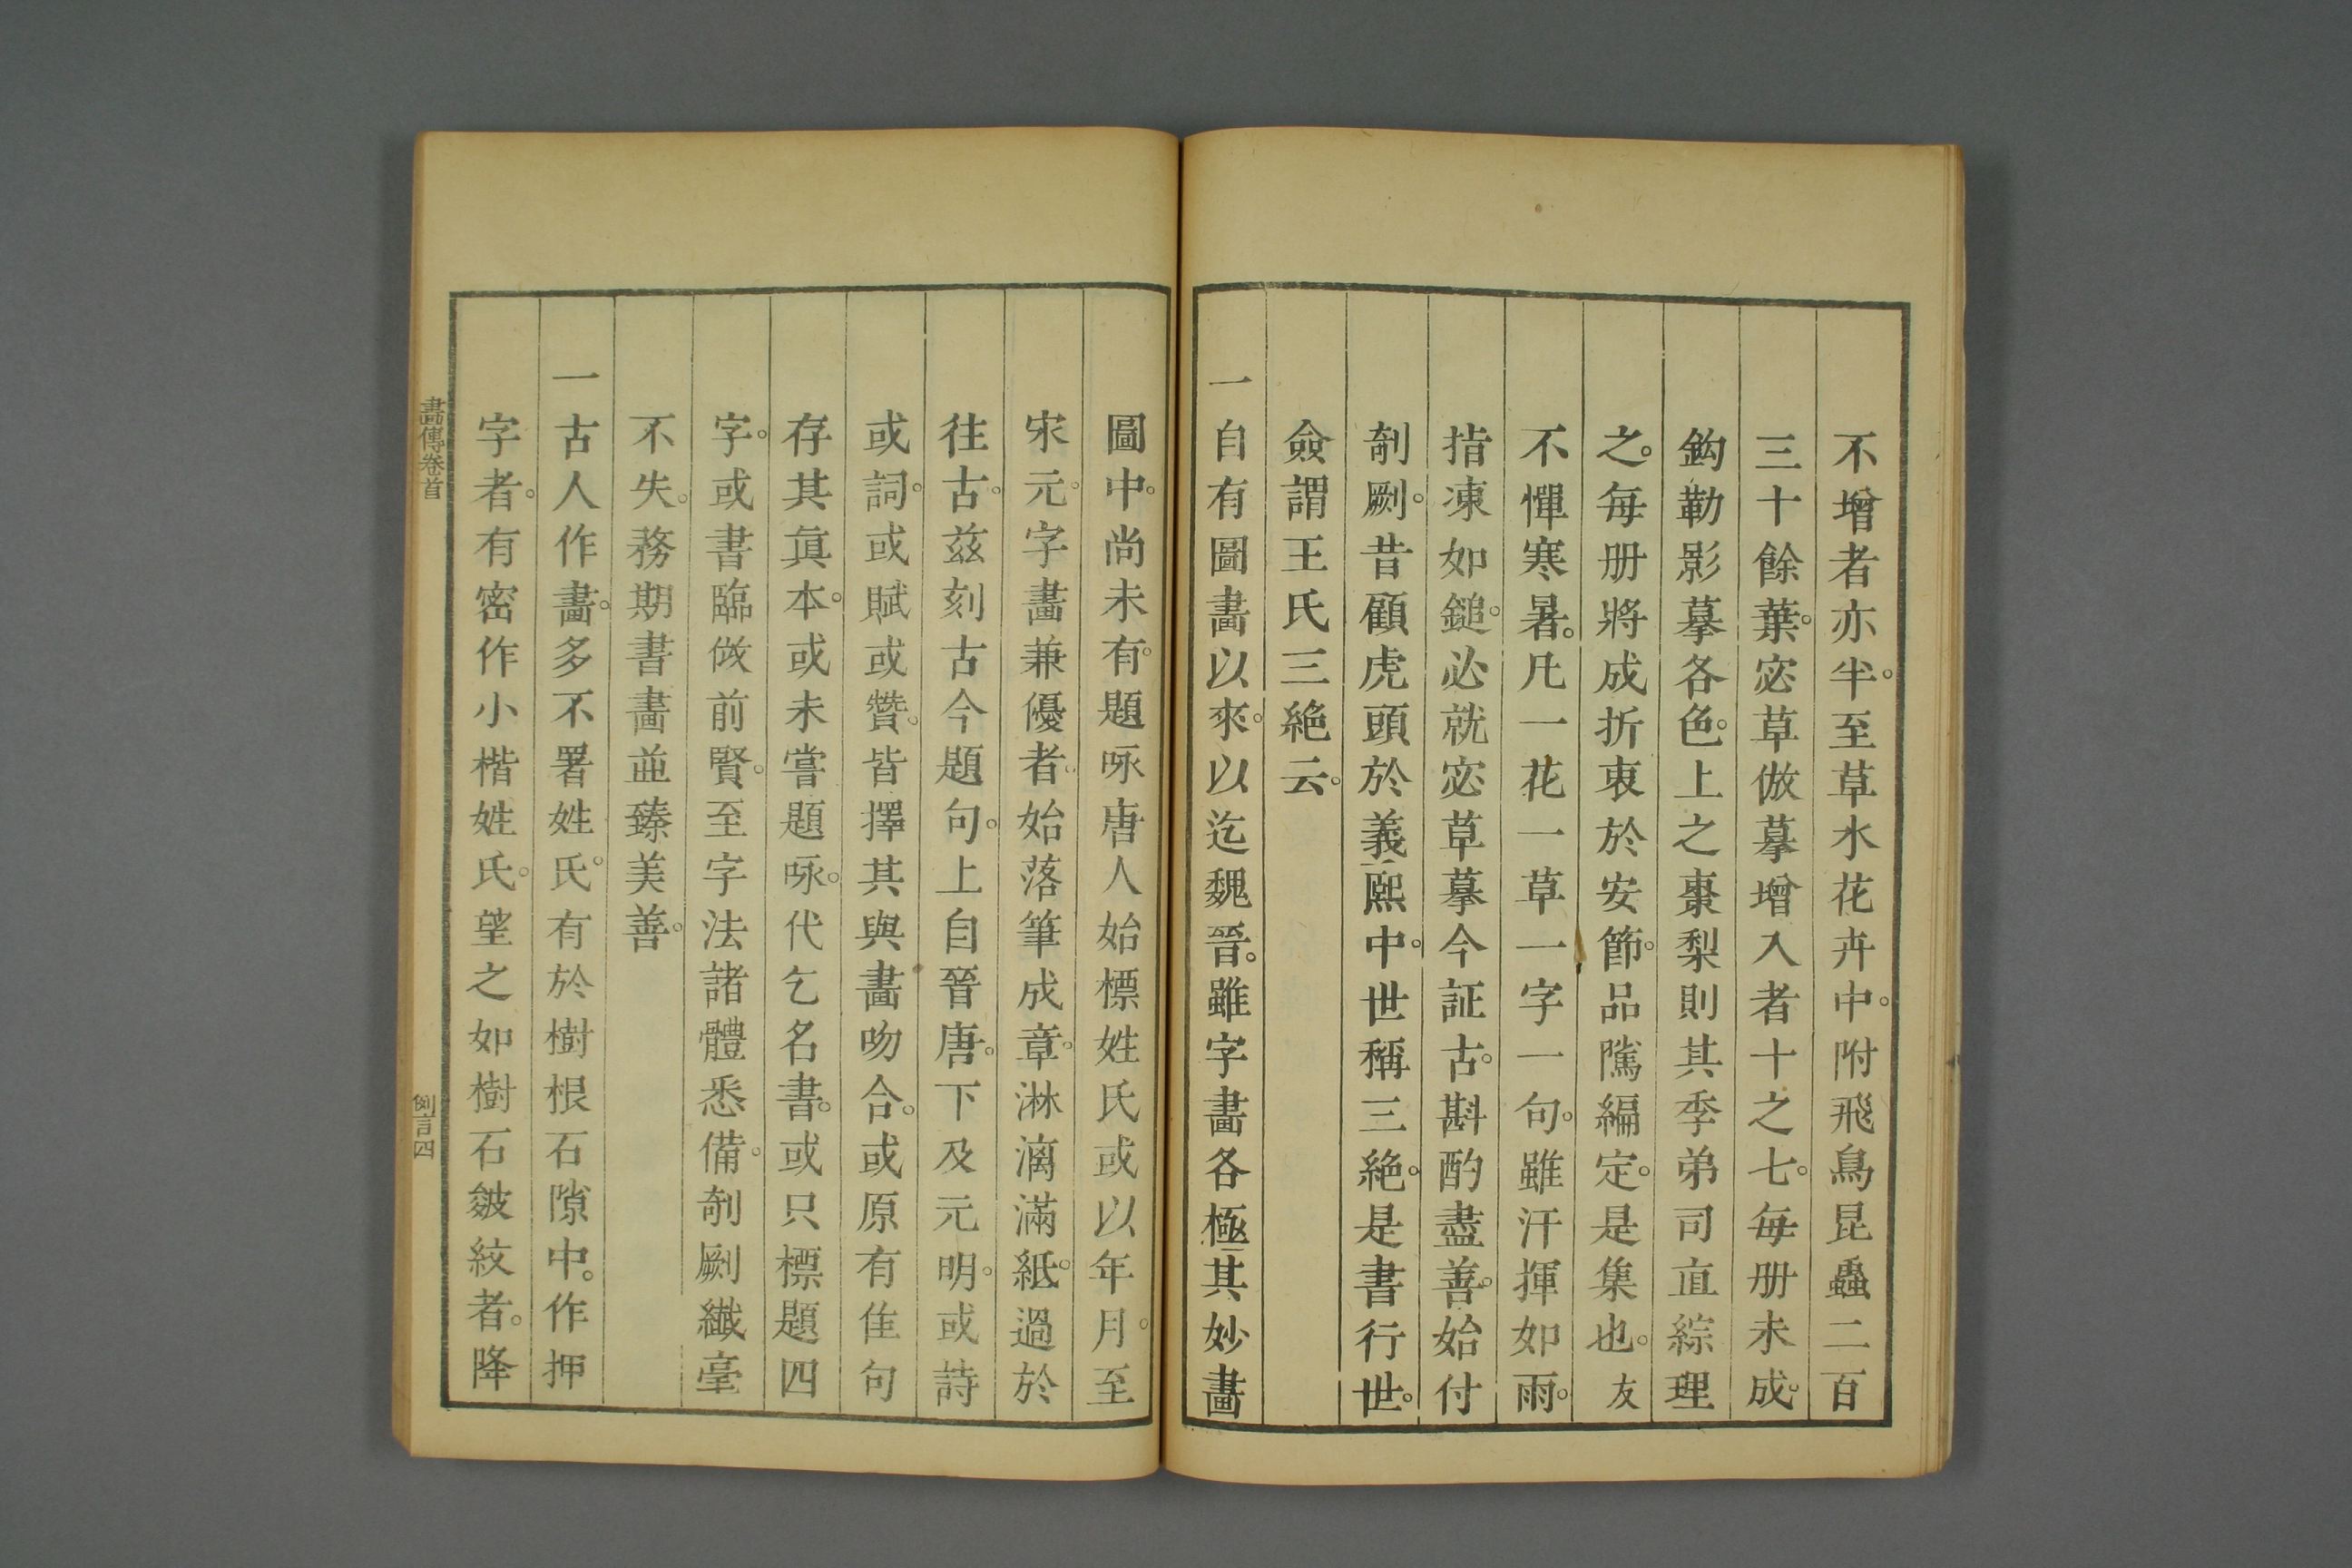 不增者亦半。至草水花卉中。附飛鳥昆蟲二百
三十餘葉。宓草倣摹增入者十之七。每册未成。
鈎勒影摹各色。上之棗梨則其季弟司直綜理
之。每册將成折衷於安節。品隲編定。是集也。友
不憚寒暑。凡一花一草一字一句。雖汗揮如雨。
指凍如鎚。必就宓草摹今証古。斟酌盡善。始付
剞劂。昔顧虎頭於義熙中。世稱三絶。是書行世。
僉謂王氏三絶云。
一自有圖畫以來。以迄魏晉。雖字畫各極其妙畫
圖中。尚未有。題咏唐人始標姓氏或以年月。至
宋元。字畫兼優者。始落筆成章。淋漓滿紙。過於
往古。兹刻古今題句。上自晉唐。下及元明。或詩
或詞。或賦或贊。皆擇其與畫吻合。或原有佳句
存其眞本。或未嘗題咏。代乞名書。或只標題四
字。或書臨倣前賢。至字法諸體悉備。剞劂纖毫
不失。務期書畫並臻美善。
一古人作畫。多不署姓氏。有於樹根石隙中。作押
字者。有密作小楷姓氏。望之如樹石皴紋者。降
畫傳卷首
例言四